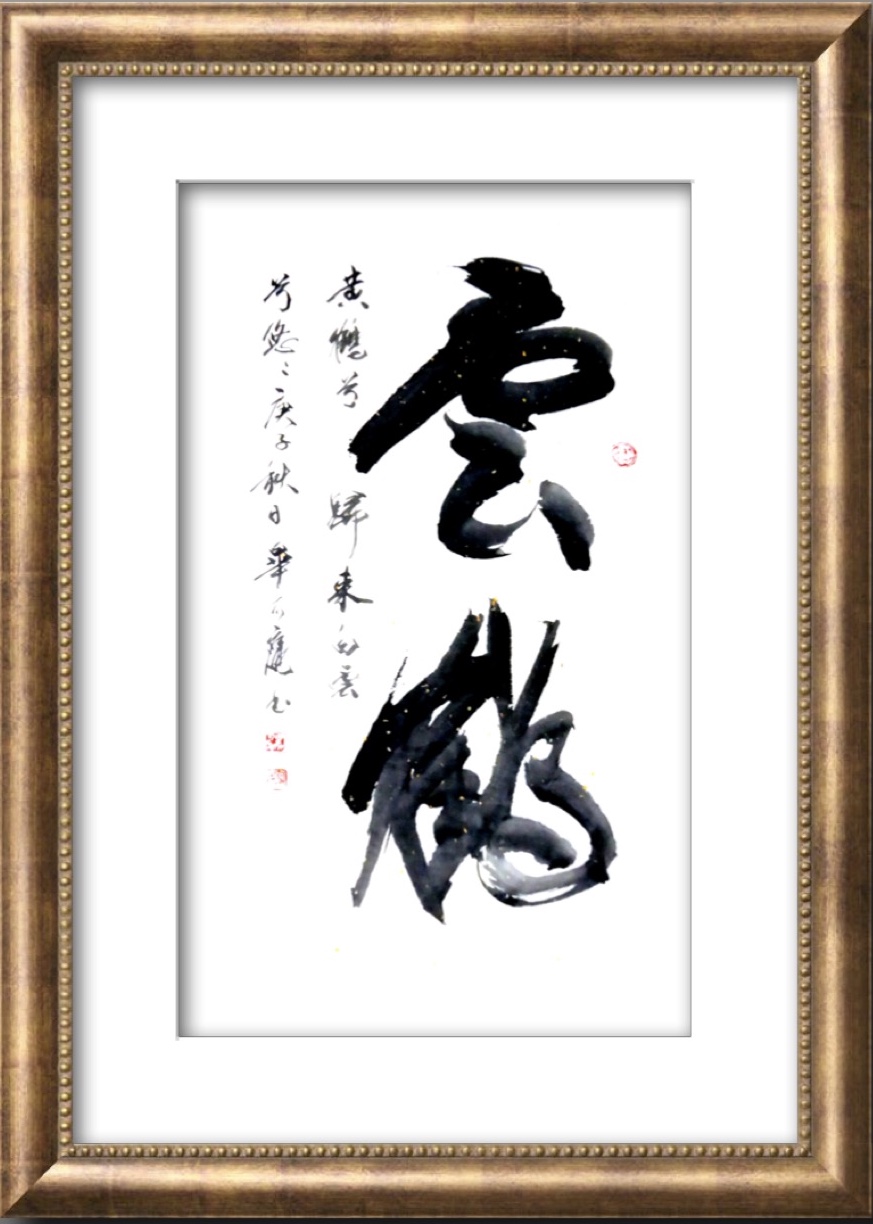 雲鶴
黄鶴兮歸來白雲
兮悠〻庚子秋日華书